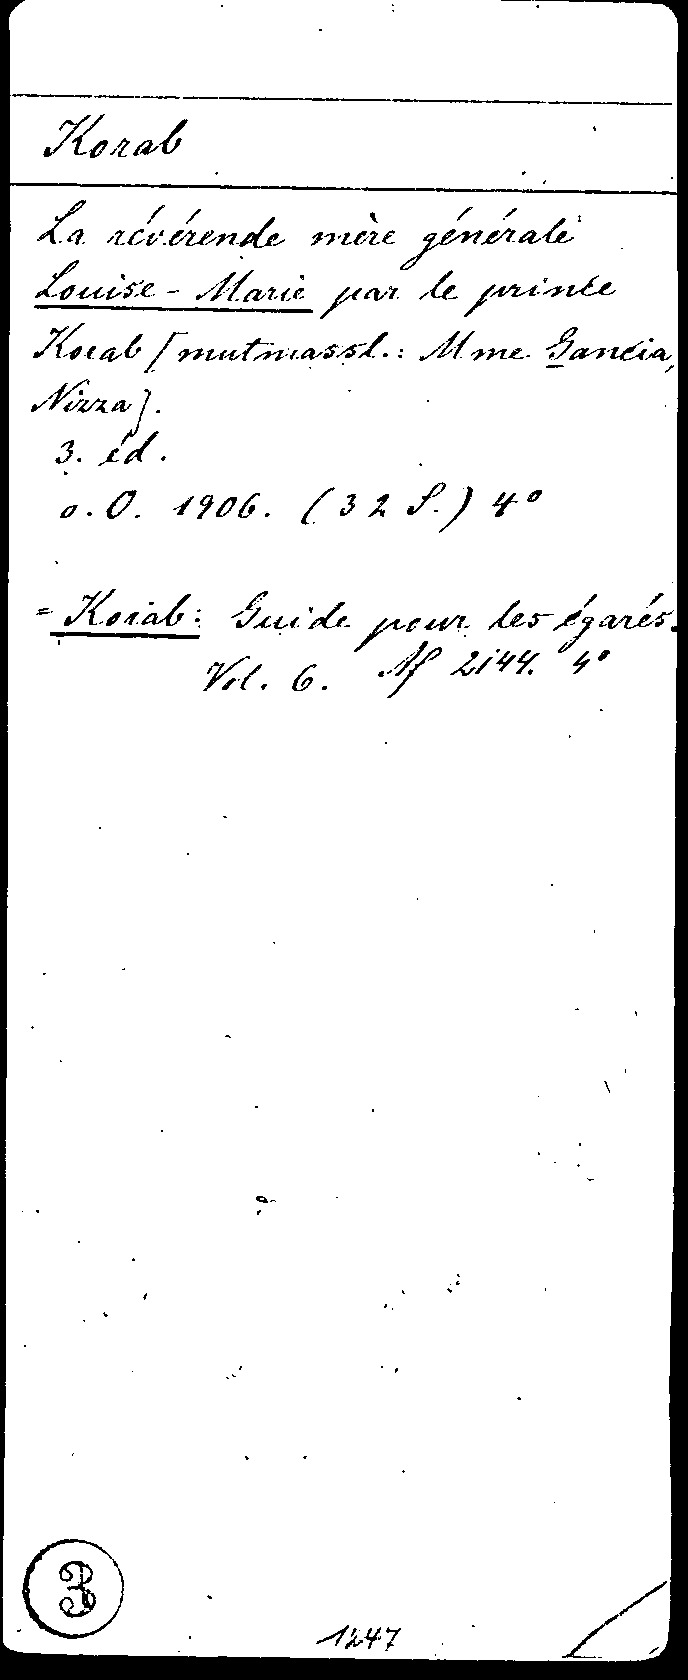 Korab
La révérende mère générale
Louise-Marie par le prince
Korab [mutmassl.: Mme Gancia,
Nizza].
3. éd.
o. O. 1906. (32 S.) 4°
= Korab: Guide pour les égarés.
Vol. 6. Nf 2144. 4°
3
1247